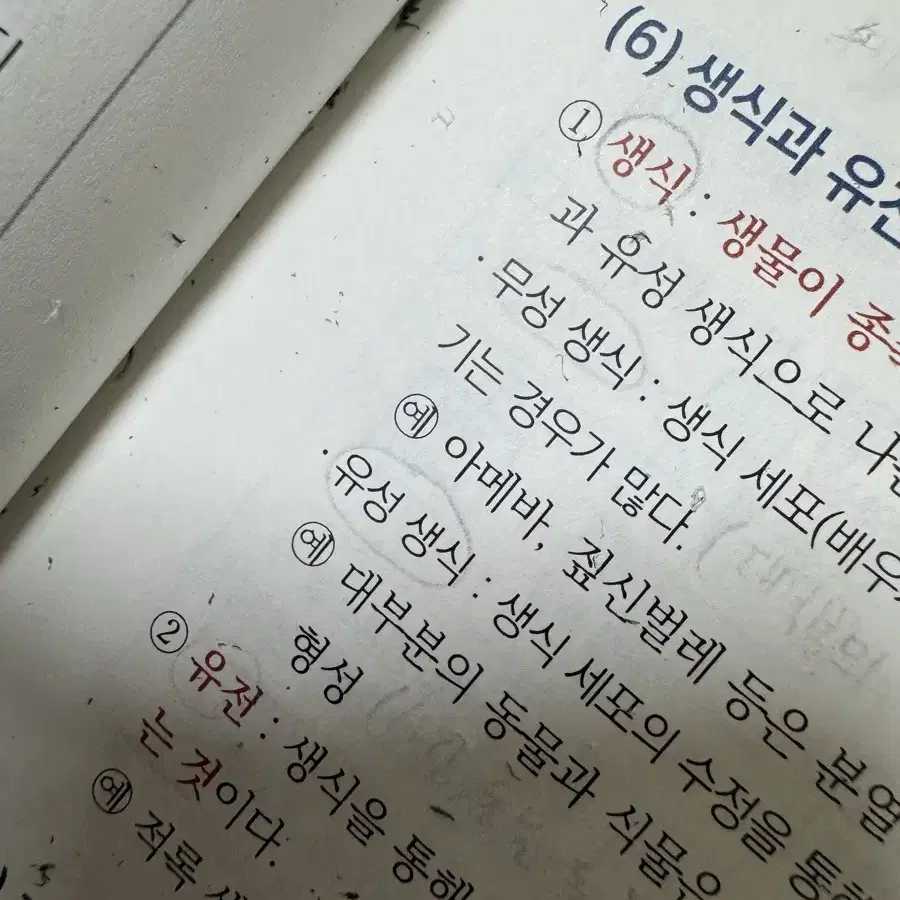 (6) 생식과 유전
① 생식 : 생물이 종족
과 유성 생식으로 나
· 무성 생식 : 생식 세포(배우
기는 경우가 많다.
예 아메바, 짚신벌레 등은 분열
· 유성 생식 : 생식 세포의 수정을 통
예 대부분의 동물과 식물은
형성
② 유전 : 생식을 통해
는 것이다.
예 적록